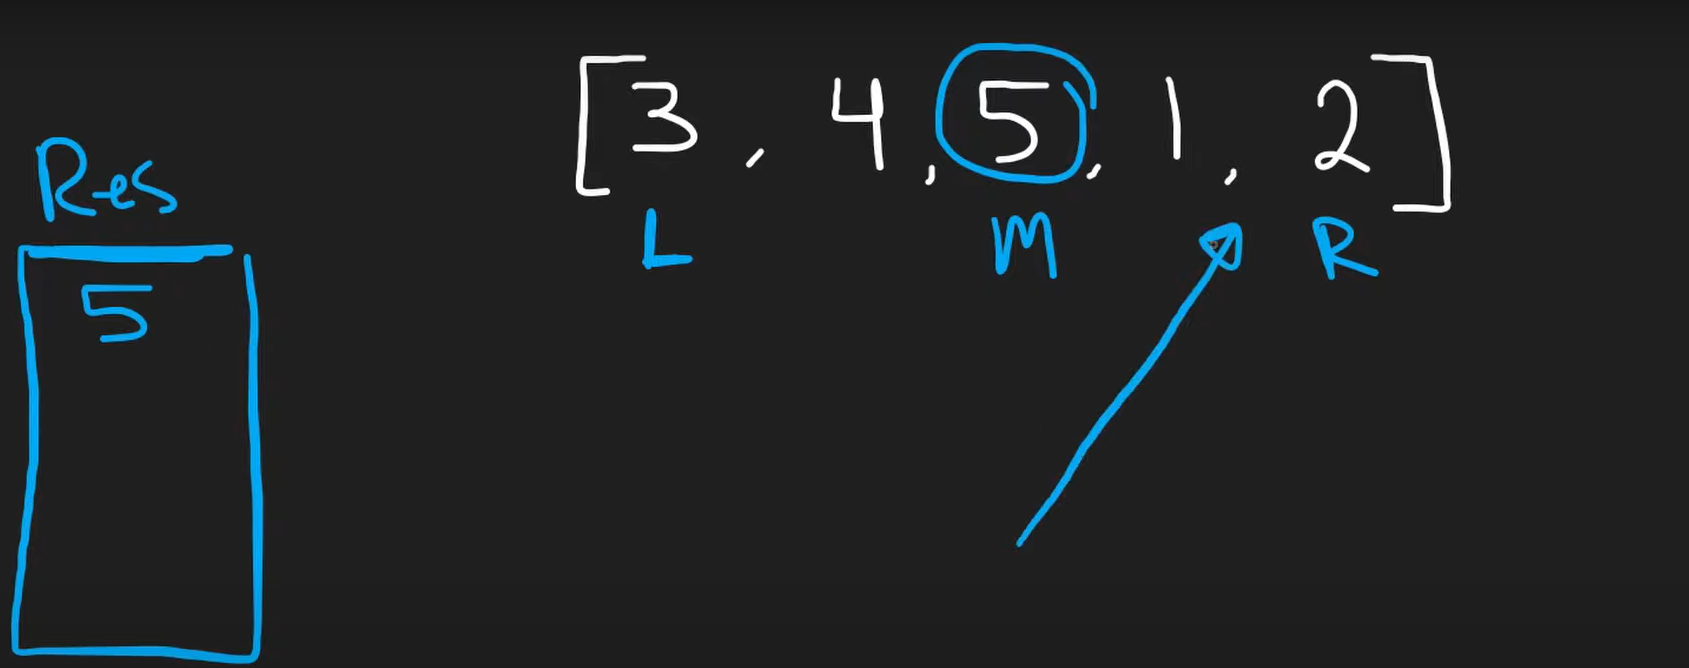 [3, 4, 5, 1, 2]
L M R
Res
5